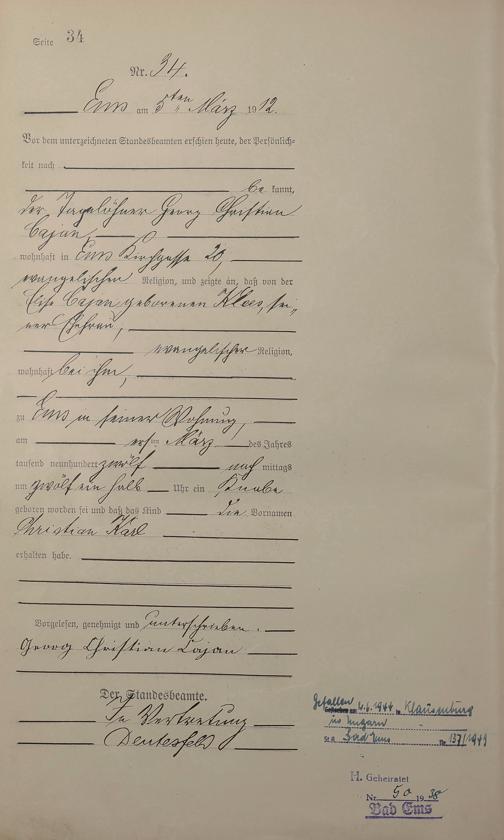 Seite 34
Nr. 34.
Ems am 5ten März 1912.
Vor dem unterzeichneten Standesbeamten erschien heute, der Persönlich-
keit nach
be kannt,
der Tagelöhner Georg Christian
Cajan,
wohnhaft in Ems Kirchgasse 20,
evangelischen Religion, und zeigte an, daß von der
Elise Cajan geborenen Kloos, sei-
ner Ehefrau,
evangelischer Religion,
wohnhaft bei ihm,
zu Ems in seiner Wohnung,
am ersten März des Jahres
tausend neunhundert zwölf nach mittags
um zwölf ein halb Uhr ein Knabe
geboren worden sei und daß das Kind die Vornamen
Christian Karl
erhalten habe.
Vorgelesen, genehmigt und unterschrieben.
Georg Christian Cajan
Der Standesbeamte.
In Vertretung
Gefallen
am 4.6.1944 in Klausenburg
in Ungarn
Bad Ems nr. 137/1949
H. Geheiratet
Nr. 50 1938
Bad Ems